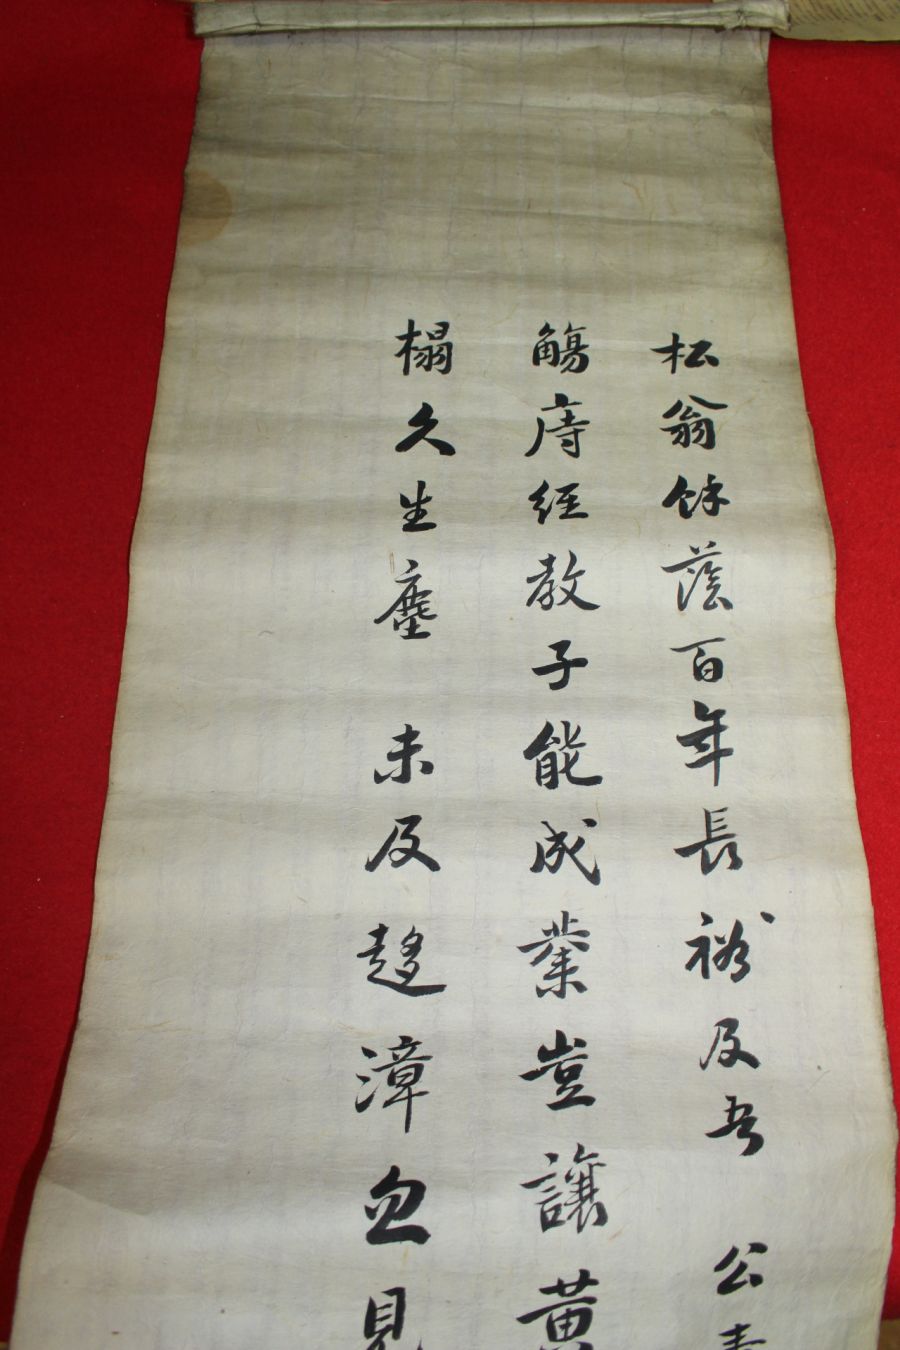 松翁餘蔭百年長裕及吾 公壽
觴庤經教子能成業豈讓黃
榻久生塵 未及趍漳忽見